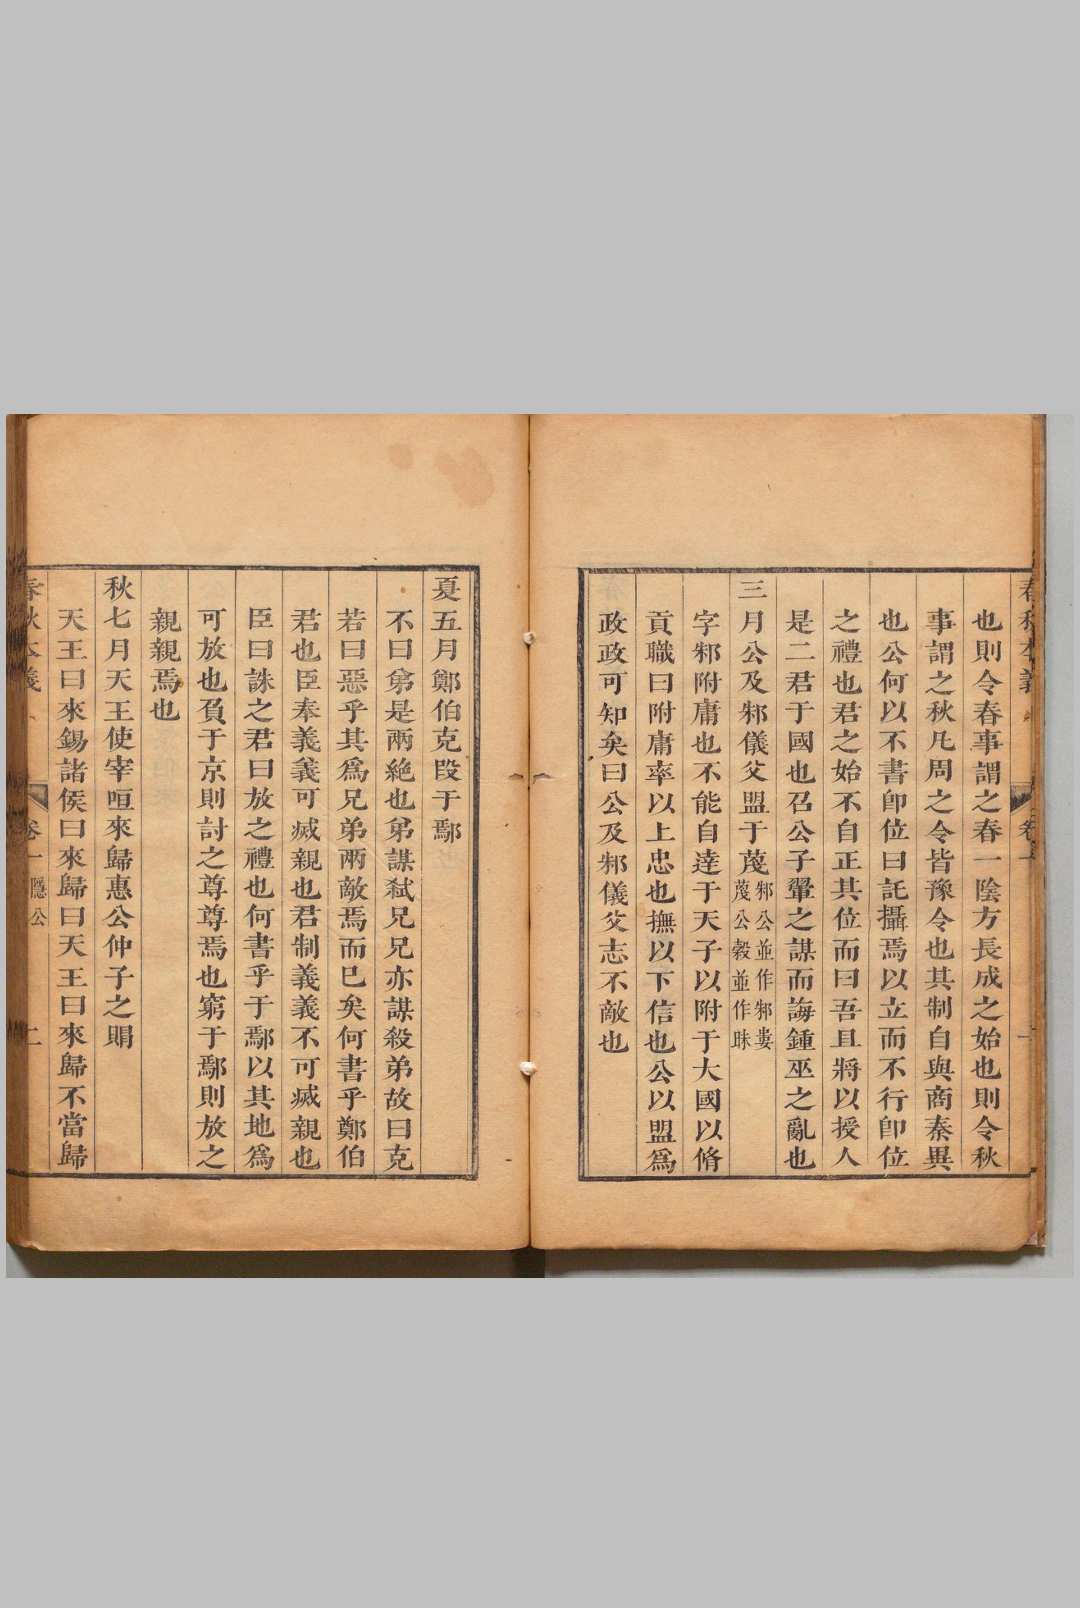 春秋本義
卷一
也則令春事謂之春一陰方長成之始也則令秋
事謂之秋凡周之令皆豫令也其制自與商秦異
也公何以不書卽位曰託攝焉以立而不行卽位
之禮也君之始不自正其位而曰吾且將以授人
是二君于國也召公子翬之謀而誨鍾巫之亂也
三月公及邾儀父盟于蔑邾公並作邾婁
蔑公穀並作眜
字邾附庸也不能自達于天子以附于大國以脩
貢職曰附庸率以上忠也撫以下信也公以盟爲
政政可知矣曰公及邾儀父志不敵也
夏五月鄭伯克段于鄢
不曰弟是兩絶也弟謀弑兄兄亦謀殺弟故曰克
若曰惡乎其爲兄弟兩敵焉而已矣何書乎鄭伯
君也臣奉義義可滅親也君制義義不可滅親也
臣曰誅之君曰放之禮也何書乎于鄢以其地爲
可放也負于京則討之尊尊焉也窮于鄢則放之
親親焉也
秋七月天王使宰咺來歸惠公仲子之賵
天王曰來錫諸侯曰來歸曰天王曰來歸不當歸
春秋本義
卷一 隱公
二